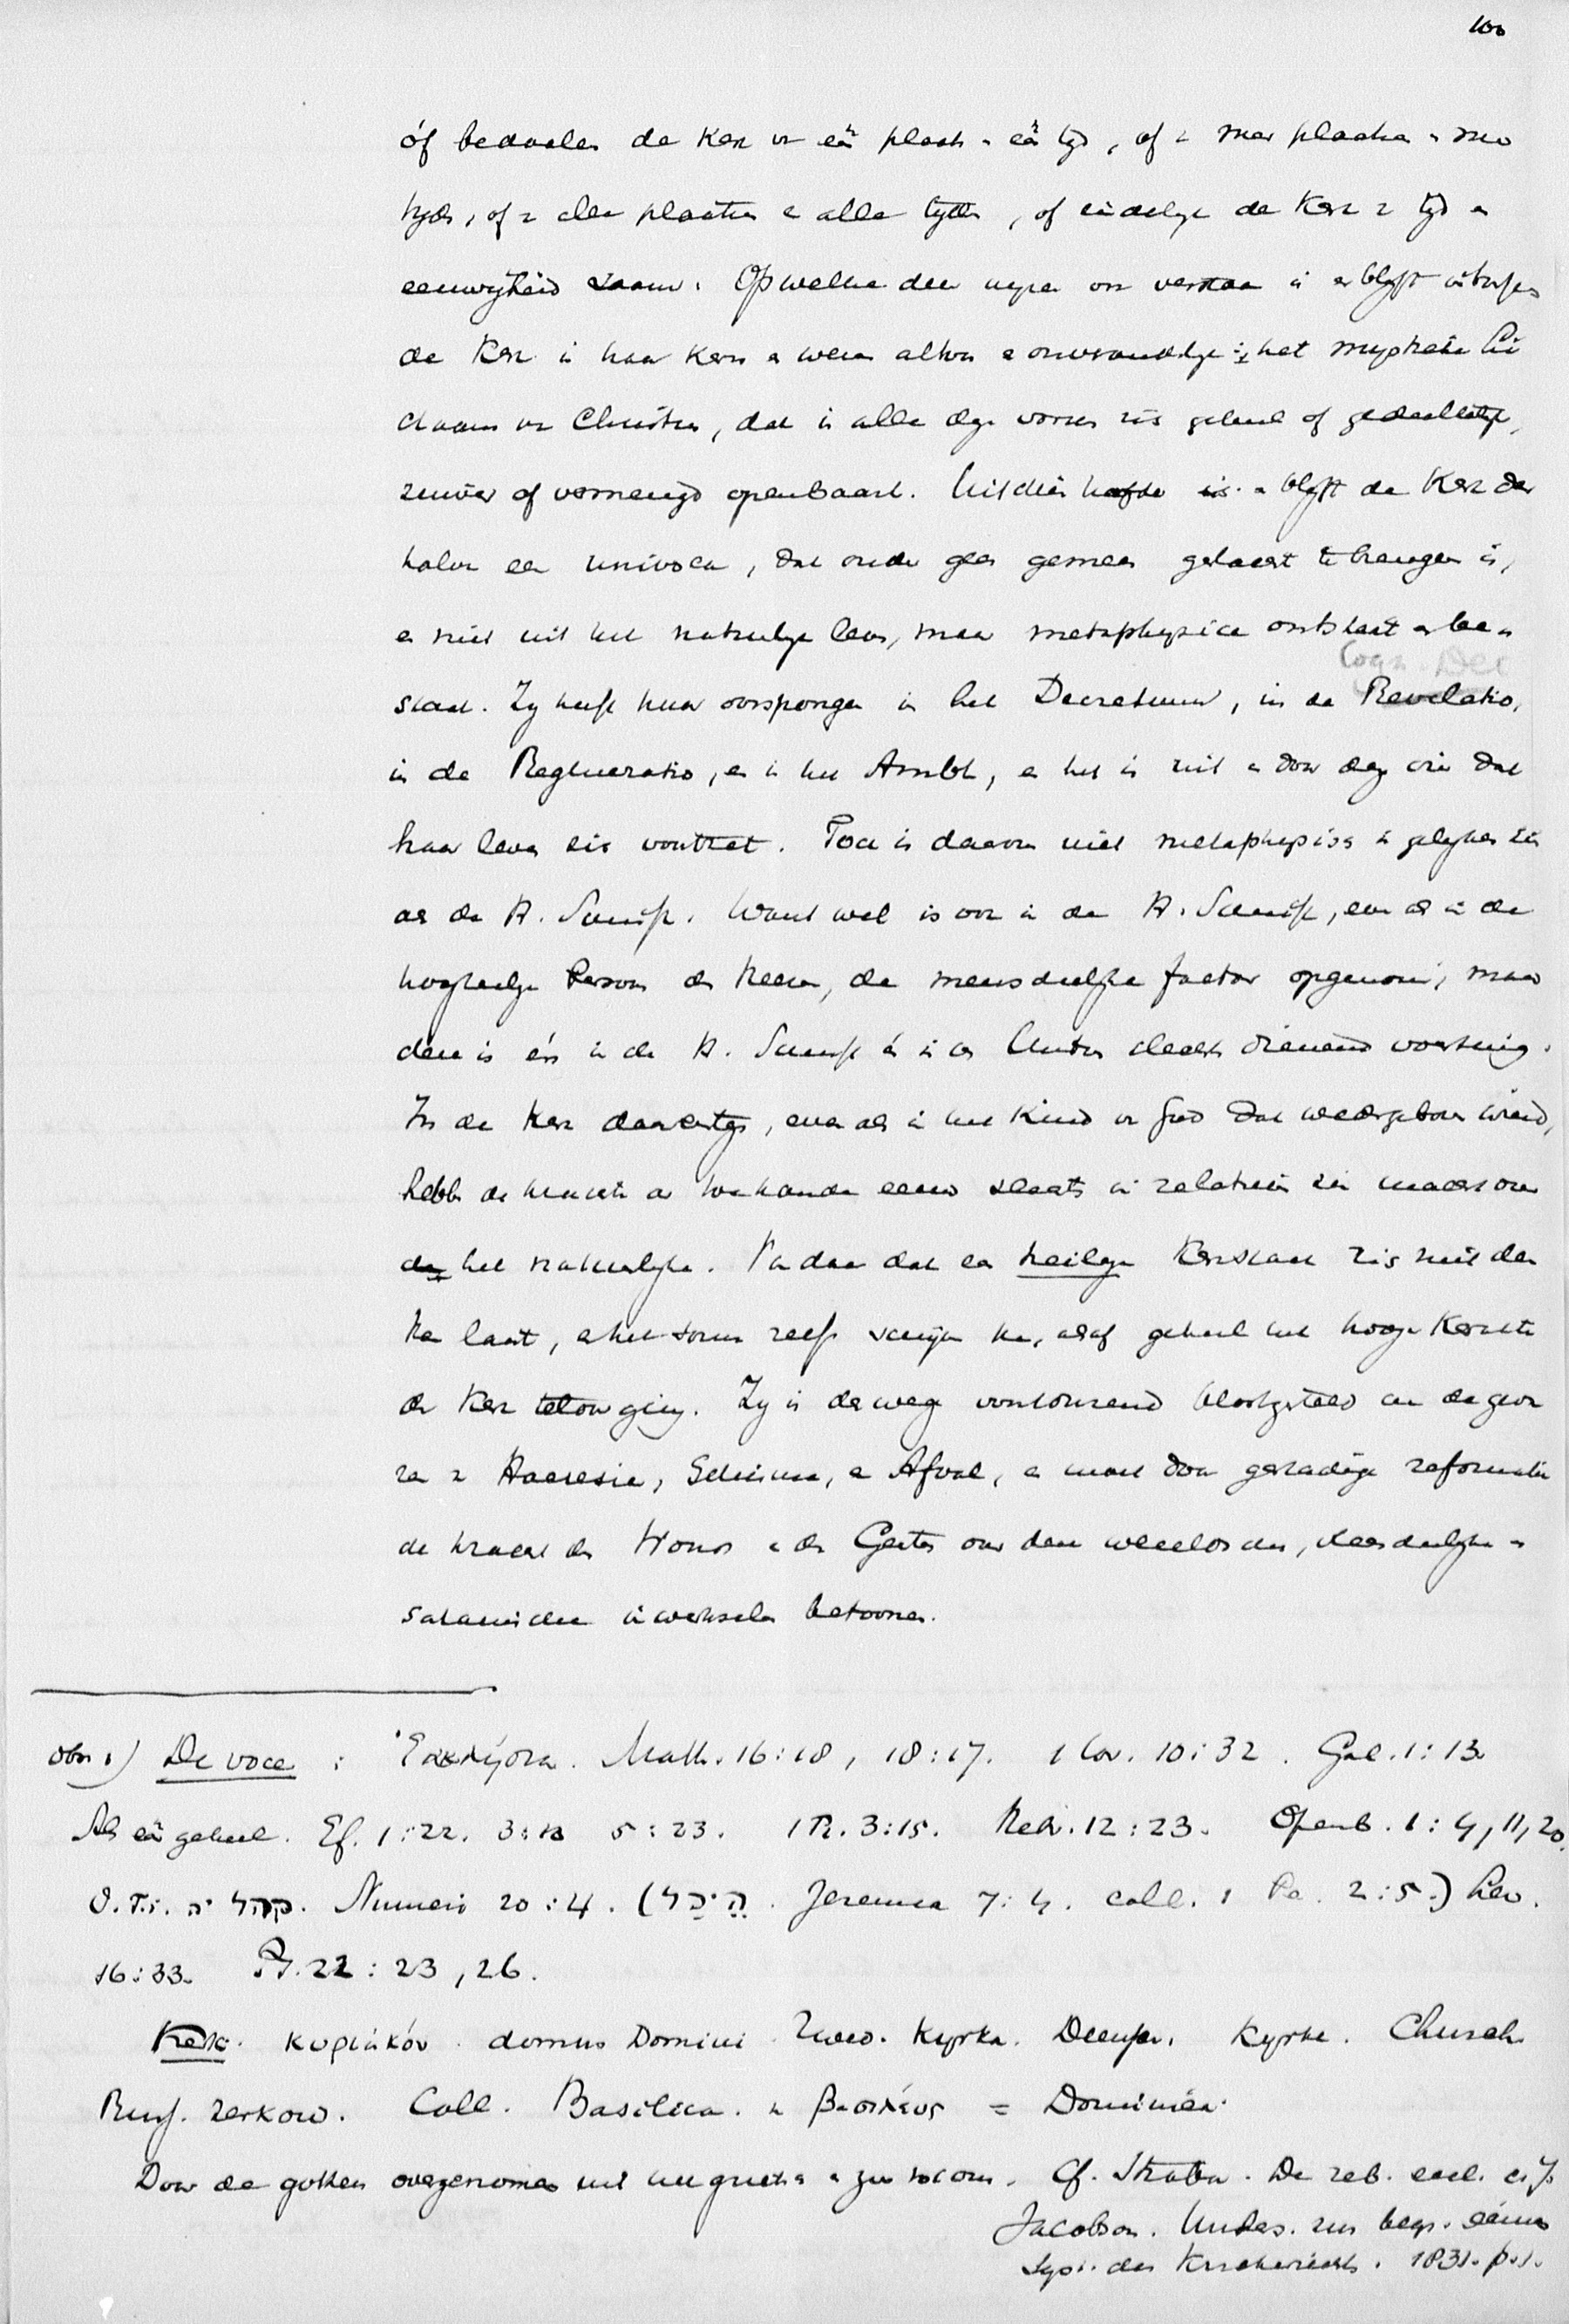 100
óf bedoelen de Kerk in één plaats en één tijd, of in meer plaatsen en meer
tijden, of in alle plaatsen en alle tijden, of eindelijk de Kerk in tijd en
eeuwigheid saam. Op welke dezer wijzen ook verstaan is en blijft intusschen
de Kerk in haar kern en wezen altoos en onveranderlijk: het mystieke Li
chaam van Christus, dat in alle deze vormen zich geheel of gedeeltelijk,
zuiver of vermengd openbaart. Uit dien hoofde is en blijft de Kerk der
halve een univocum, dat onder geen gemeen geslacht te brengen is,
en niet uit het natuurlijke leven, maar metaphysice ontstaat en be
Cogn. Dei
staat. Zij heeft haar oorsprongen in het Decretum, in de Revelatio,
in de Regeneratio, en in het Ambt, en het is uit en door deze vier dat
haar leven zich voortzet. Toch is daarom niet metaphysisch in gelijken zin
als de H. Schrift. Want wel is ook in de H. Schrift, even als in de
hoogheilige Persoon des Heeren, de menschelijke factor opgenomen, maar
deze is én in de H. Schrift én in den Christus slechts dienend voertuig.
In de Kerk daarentegen, even als in het Kind van God dat wedergeboren wierd,
hebben de krachten der toekomende eeuw slechts in relatieven zin macht over
het natuurlijke. Van daar dat een heilige Kerkstaat zich niet den
ken laat, en het soms zelfs schijnen kan, alsof geheel het hooge karakter
der Kerk teloor ging. Zij is derwege voortdurend blootgesteld aan de geva
ren van Haeresie, Schisma, en Afval, en moet door gestadige reformatie
de kracht des Woords en des Geestes over deze wereldsche, vleeschelijke en
satanische inwerkselen betoonen.
obs 1) De voce : Ἐκκλησία. Matth. 16:18, 18:17. 1 Cor. 10:32. Gal. 1:13
Als één geheel. Ef. 1:22. 3:10 5:23. 1 Ti. 3:15. Hebr. 12:23. Openb. 1:4, 11, 20.
O.T. קהל יה. Numeri 20:4. (הֵיכָל. Jeremia 7:4. coll. 1 Pe. 2:5.) Lev.
16:33. Ps. 22:23, 26.
Kerk. κυριακόν. domus Domini Zweed. Kyrka. Deensch. Kyrke. Church
Russ. zerkow. Coll. Basilica. βασιλεύς = Dominica.
Door de gothen overgenomen uit het grieksch en zoo tot ons. Cf. Strabo. De reb. eccl. c. 7.
Jacobson. Unters. zur begr. eines
Syst. des Kirchenrechts. 1831. p. 1.